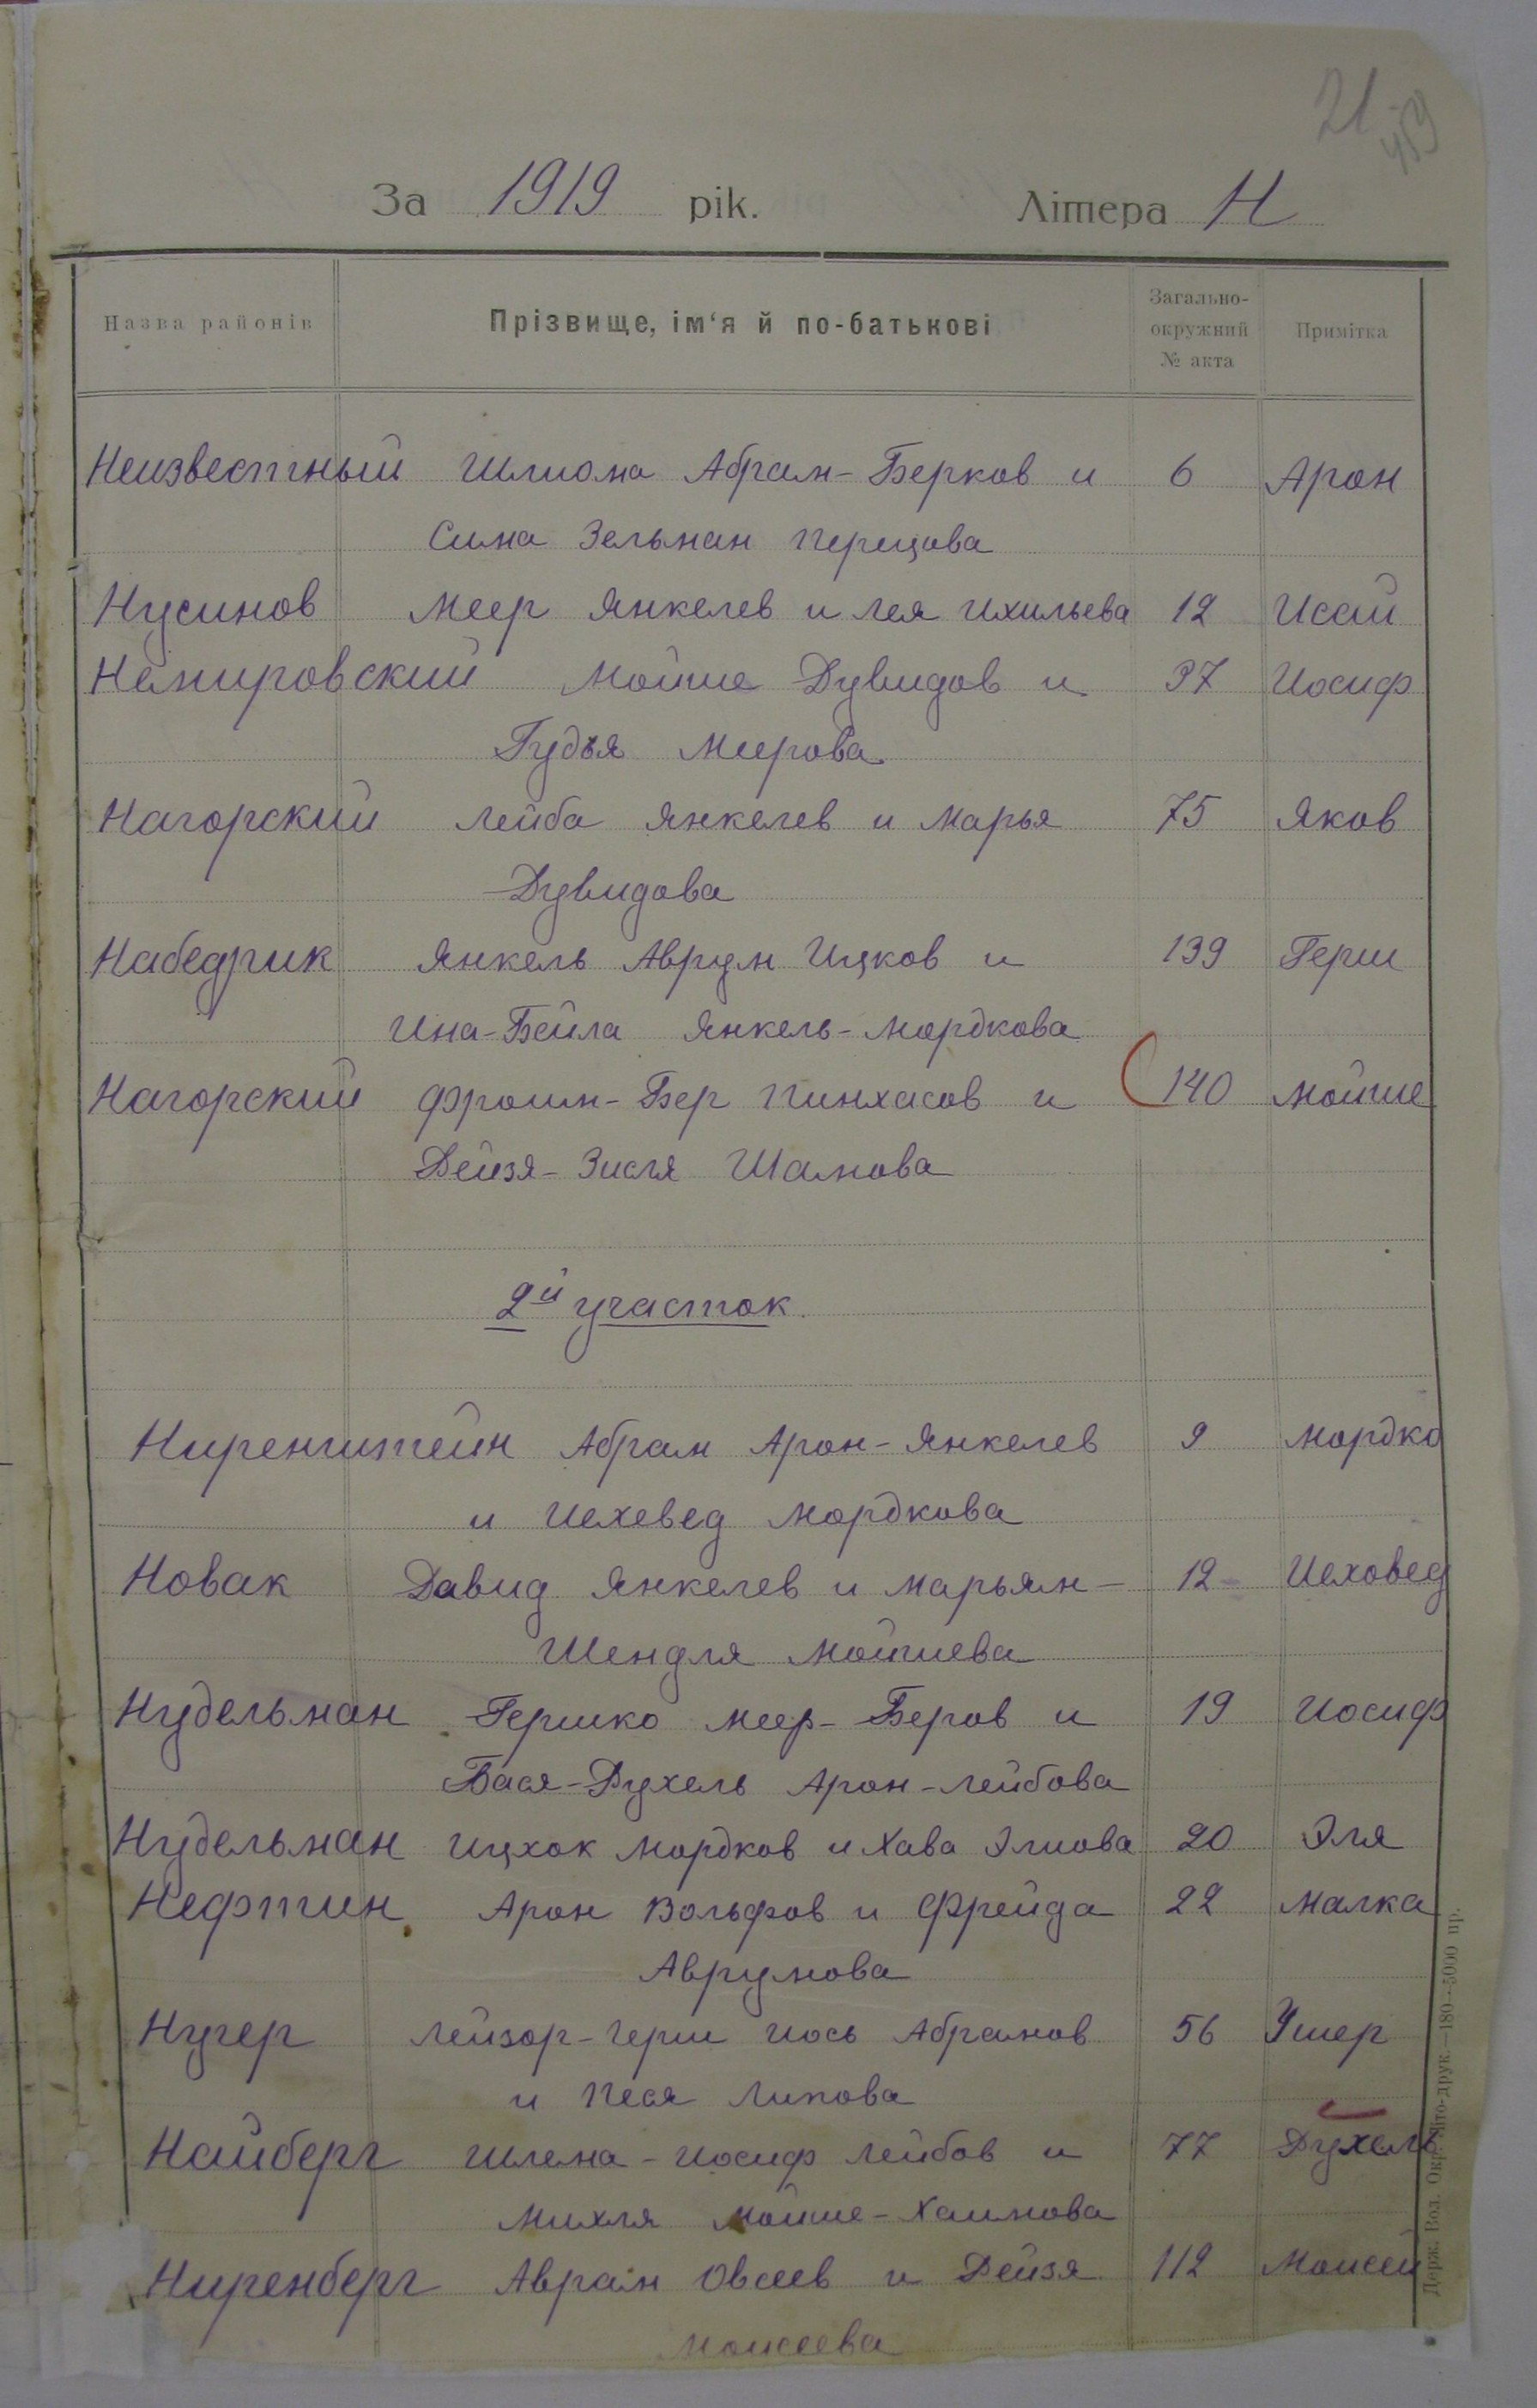 21
459
За 1919 рік. Літера Н
Назва районів Прізвище, ім‘я й по-батькові Загально-окружний № акта Примітка
Неизвестный Шлиома Абрам-Берков и 6 Арон
Сима Зельман Перецова
Нусинов Меер Янкелев и Лея Ихильева 12 Исай
Немировский Мойше Дувидов и 37 Иосиф
Гудья Меерова
Нагорский Лейба Янкелев и Марья 75 Яков
Дувидова
Набедрик Янкель Аврум Ицков и 139 Герш
Ина-Бейла Янкель-Мордкова
Нагорский Фроим-Бер Пинхасов и 140 Мойше
Дейзя-Зисля Шамова
2й участок.
Ниренштейн Абрам Арон-Янкелев 9 Мордко
и Иехевед Мордкова
Новак Давид Янкелев и Марьям- 12 Иеховед
Шендля Мошиева
Нудельман Гершко Меер-Беров и 19 Иосиф
Бася-Рухель Арон-Лейбова
Нудельман Ицхок Мордков и Хава Элиова 20 Эля
Нефтин Арон Вольфов и Фрейда 22 Малка
Аврумова
Нугер Лейзор-Герш Иось Абрамов 56 Ушер
и Песя Липова
Найберг Шлема-Иосиф Лейбов и 77 Рухель
Михля Мойше-Хаимова
Ниренберг Аврам Овсеев и Дейзя 112 Моисей
Моисеева
Держ. Вол. Окр. Літо-друк.—180—5000 пр.